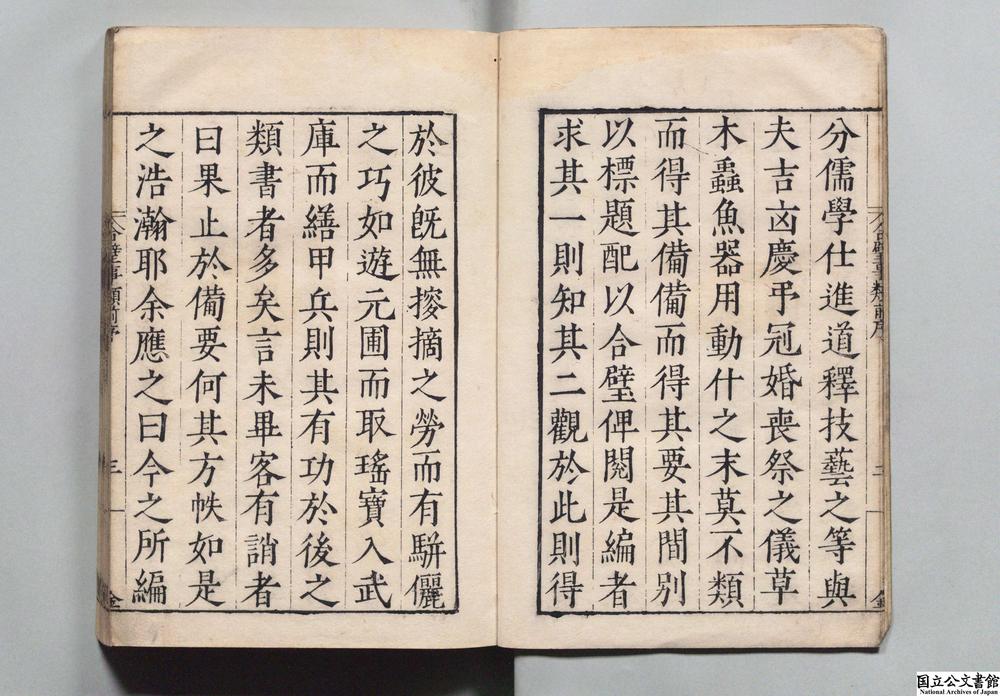 分儒學仕進道釋技藝之等與
夫吉凶慶弔冠婚喪祭之儀草
木蟲魚器用動什之末莫不類
而得其備備而得其要其間別
以標題配以合璧俾閱是編者
求其一則知其二觀於此則得
於彼旣無㨿摘之勞而有駢儷
之巧如遊元圃而取瑤寶入武
庫而繕甲兵則其有功於後之
類書者多矣言未畢客有誚者
曰果止於備要何其方帙如是
之浩瀚耶余應之曰今之所編
合璧事類前序
二
合璧事類前序
三
国立公文書館
National Archives of Japan